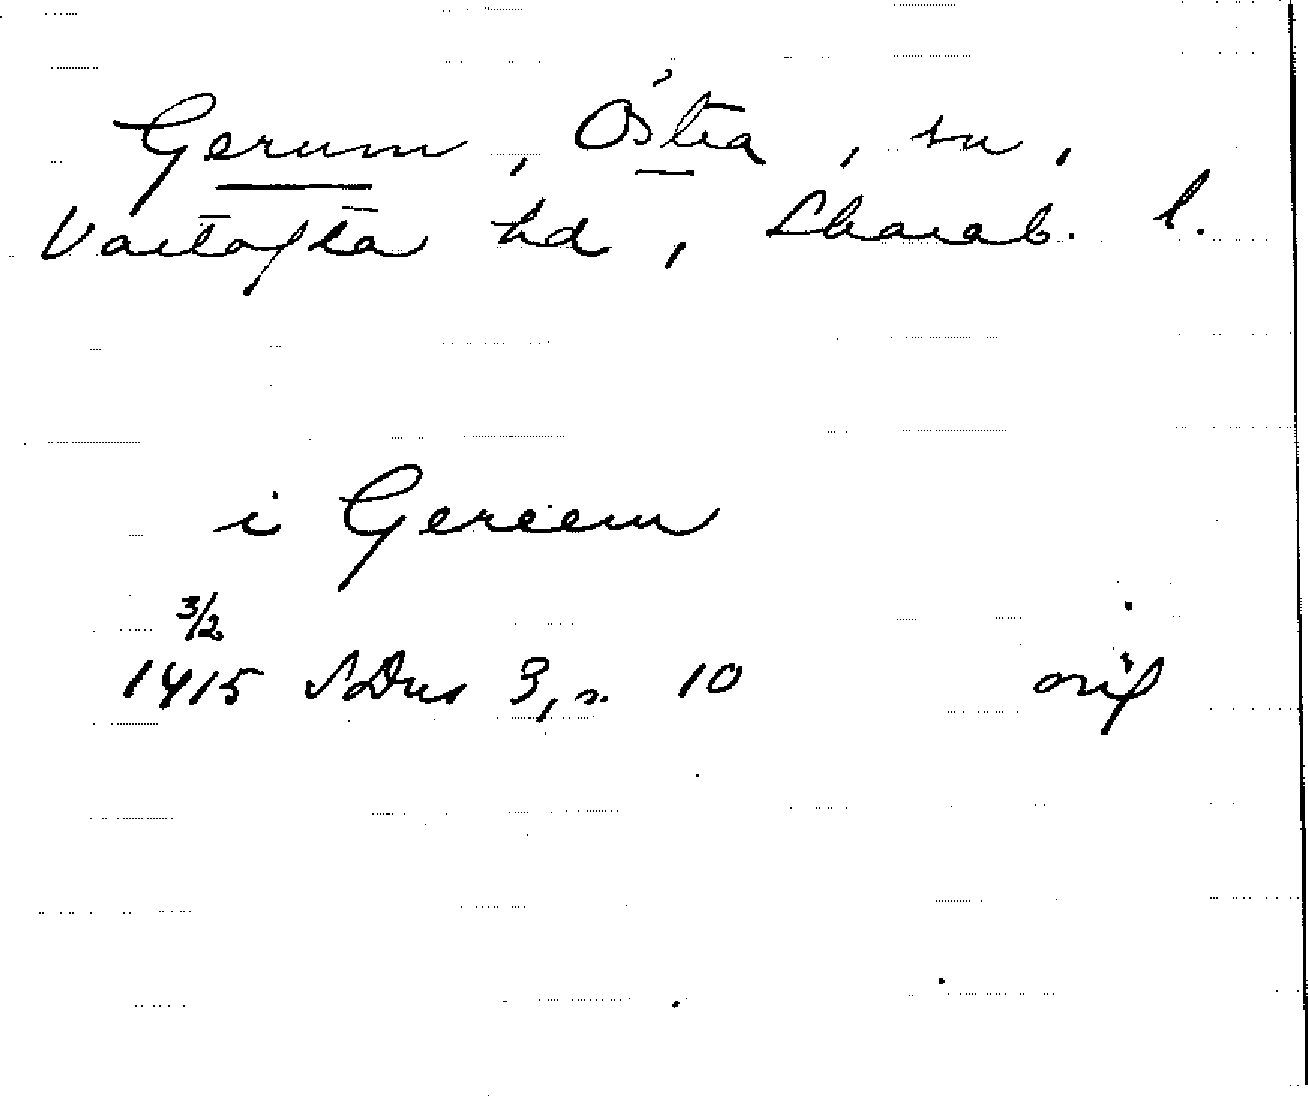 Gerum, Östra, sn,
Vartofta hd, Skarab. l.
i Gereem
3/2
1415 SDns 3, s. 10 orig